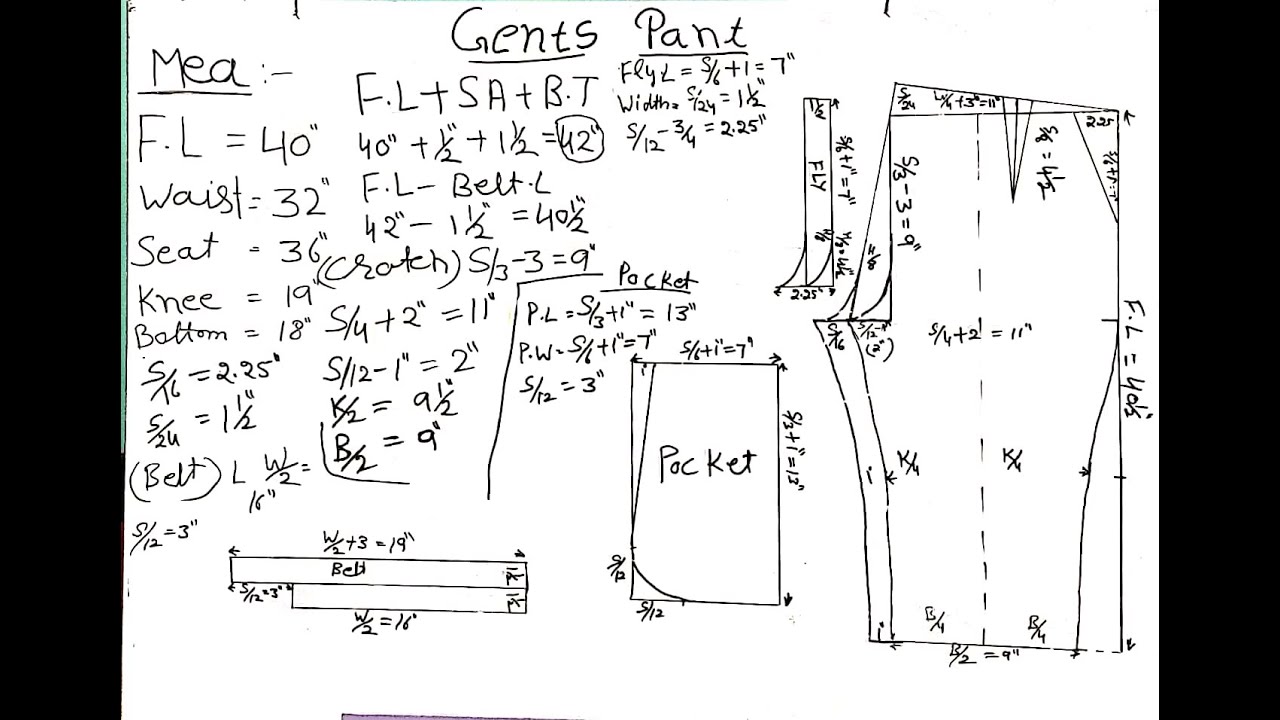 Gents Pant
Mea :-
F.L = 40"
Waist = 32"
Seat = 36"
Knee = 19"
Bottom = 18"
S/16 = 2.25"
S/24 = 1 1/2"
(Belt) L W/2 =
16"
S/12 = 3"
F.L + SA + B.T
40" + 1/2" + 1 1/2 = 42"
F.L - Belt.L
42" - 1 1/2" = 40 1/2
(Crotch) S/3 - 3 = 9"
S/4 + 2" = 11"
S/12 - 1" = 2"
K/2 = 9 1/2
B/2 = 9"
Fly L = S/6 + 1 = 7"
Width = S/24 = 1 1/2"
S/12 - 3/4 = 2.25"
Pocket
P.L = S/3 + 1" = 13"
P.W = S/6 + 1" = 7"
S/12 = 3"
S/6 + 1" = 7"
1"
Pocket
S/3 + 1" = 13"
S/12
S/12
W/2 + 3 = 19"
Belt
S/12 = 3"
W/2 = 16"
1 1/2
S/6 + 1" = 7"
FLY
2.25"
S/24
W/4 + 3" = 11"
2.25
S/6 + 1 = 7"
S/8 = 4 1/2
S/3 - 3 = 9"
S/16
S/12 - 1"
(3")
S/4 + 2" = 11"
F.L = 40 1/2"
1"
K/4
K/4
1"
B/4
B/4
B/2 = 9"